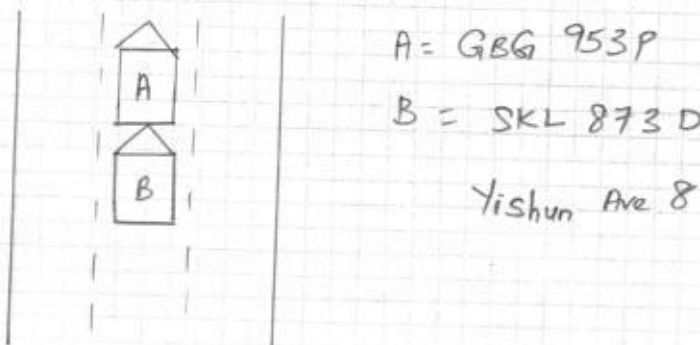 A = GBG 953P
A
B = SKL 873D
B
Yishun Ave 8